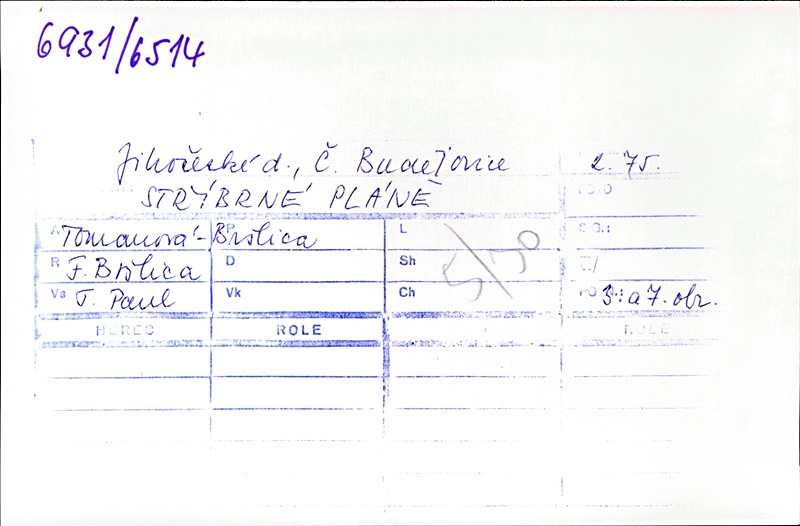 6931/6514
Jihočeské d., Č. Budějovice 2.75.
STŘÍBRNÉ PLÁNĚ FOTO
A Tomanová - P Bršlica L SIG.:
R F. Bršlica D Sh Č./
Vs T. Paul Vk Ch 3. a 7. obr.
5/30
HEREC ROLE ROLE